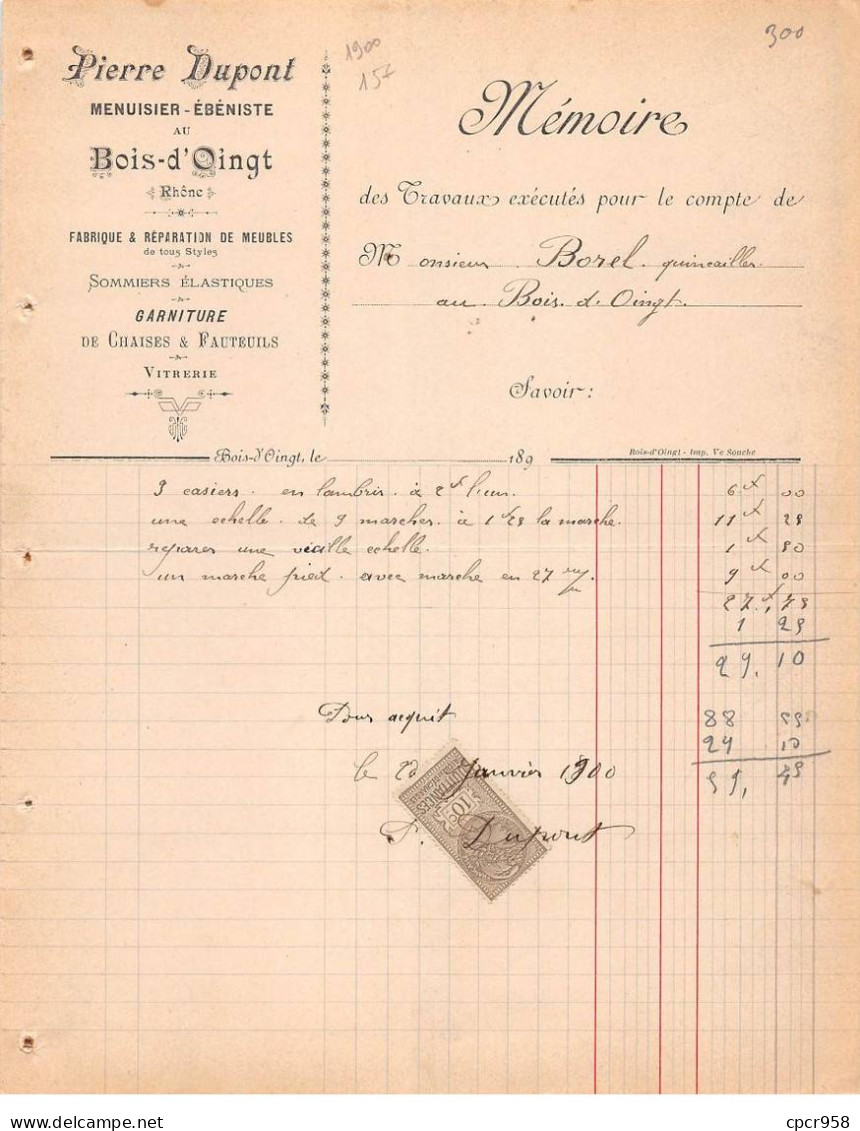 1900
157
300
Pierre Dupont
MENUISIER-ÉBÉNISTE
AU
Bois-d'Oingt
Rhône
FABRIQUE & RÉPARATION DE MEUBLES
de tous Styles
SOMMIERS ÉLASTIQUES
GARNITURE
DE CHAISES & FAUTEUILS
VITRERIE
Mémoire
des Travaux exécutés pour le compte de
Monsieur Borel quincailler
au Bois d'Oingt
Savoir:
Bois-d'Oingt, le 189
Bois-d'Oingt - Imp. Ve Souche
3 casiers en lambris à 2f l'un 6f 00
une echelle de 9 marches à 1f25 la marche. 11f 25
reparer une vieille echelle. 1f 50
un marche pied avec marche en 27 9f 00
27f, 75
1 25
29, 10
88
10
Pour acquit
le 20 Janvier 1900
P. Dupont
QUITTANCES
10c
cpcr958